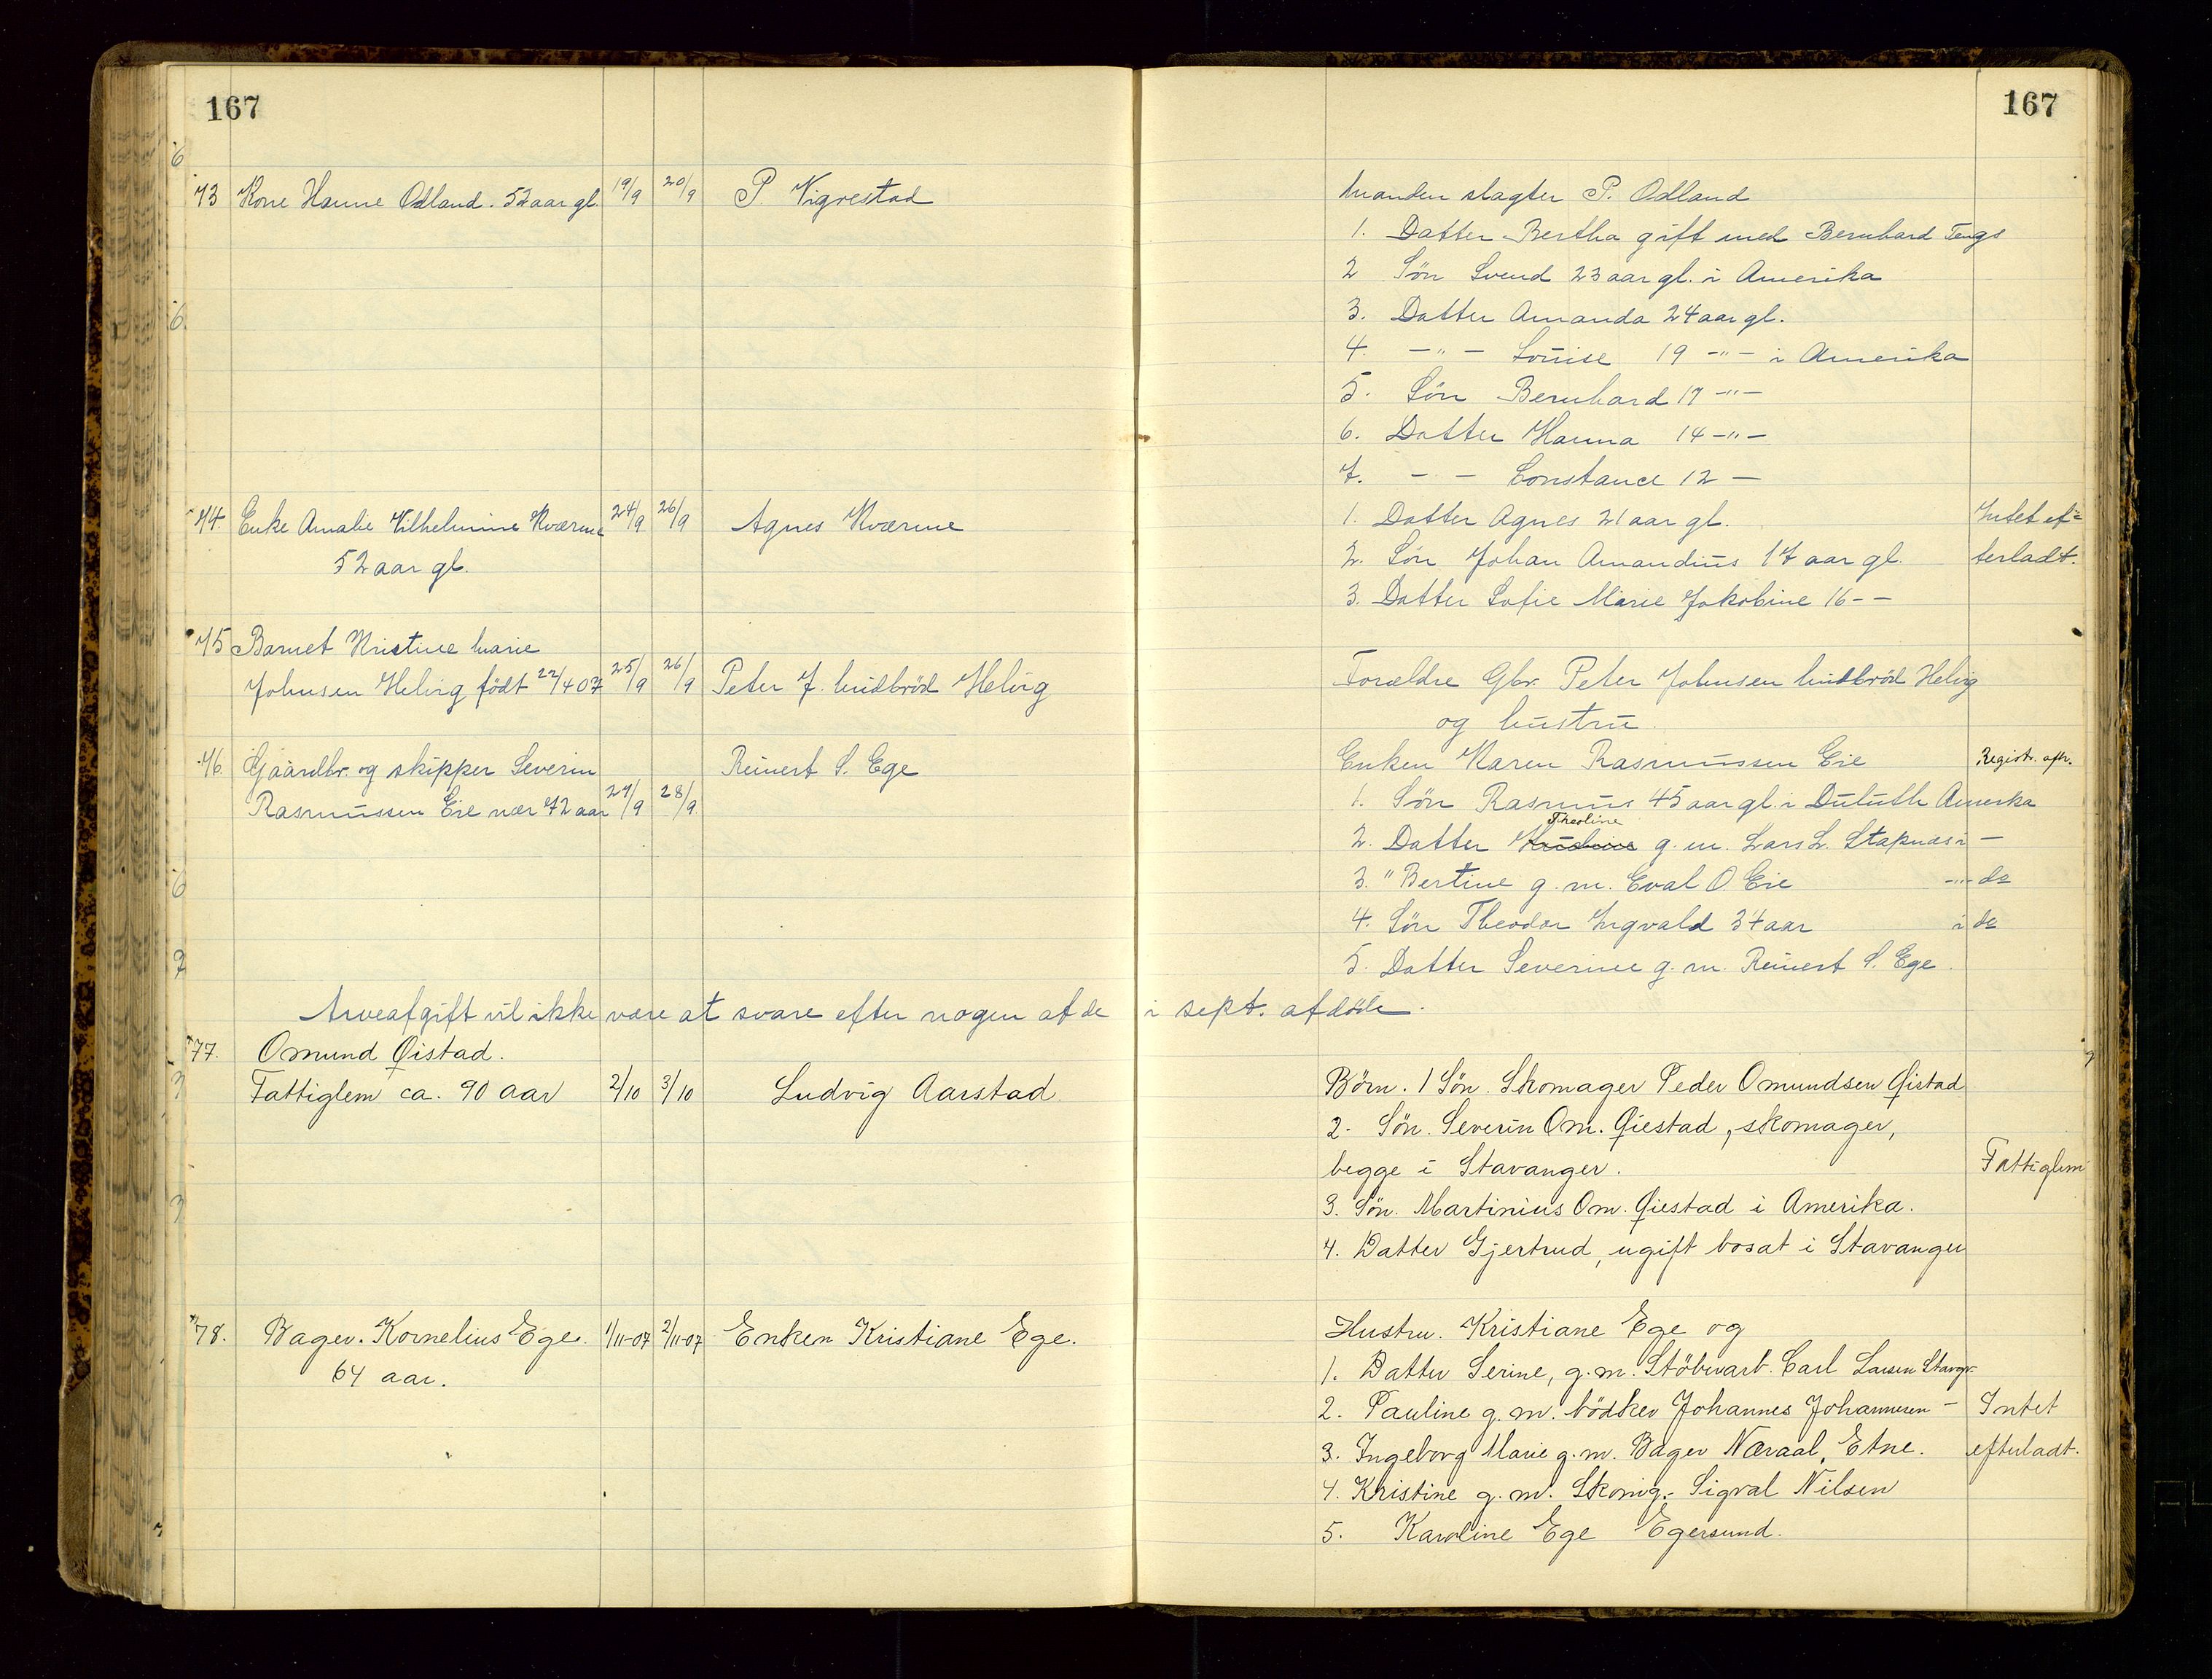 167
73 Kone Hanne Odland. 52 aar gl. 19/9 20/9 P. Vigrestad
74. Enke Amalie Vilhelmine Kværme 24/9 26/9 Agnes Kværme
52 aar gl.
75 Barnet Kristine Marie
Johnsen Helvig født 22/4 07 25/9 26/9 Peter J. Midbröd Helvig
76. Gaardbr. og skipper Severin Reinert S. Ege
Rasmussen Eie nær 72 aar 27/9 28/9
Arveafgift vil ikke være at svare efter nogen af de i sept. afdöde.
77. Omund Øistad.
Fattiglem ca. 90 aar 2/10 3/10 Ludvig Aarstad
78. Bager. Kornelius Ege. 1/11-07 2/11-07 Enken Kristiane Ege.
64 aar.
167
Manden slagter P. Odland
1. Datter Bertha gift med Bernhard Tengs
2 Sön Svend 23 aar gl. i Amerika
3. Datter Amanda 24 aar gl.
4. -"- Louise 19 -"- i Amerika
5. Sön Bernhard 17 -"-
6. Datter Hanna 14 -"-
7. - - Constance 12 -
1. Datter Agnes 21 aar gl. Intet ef=
2. Sön Johan Amandius 17 aar gl. terladt.
3. Datter Sofie Marie Jakobine 16 - -
Forældre Gbr. Peter Johnsen Midbröd Helvig
og hustru.
Enken Karen Rasmussen Eie Registr. afh.
1. Sön Rasmus 45 aar gl. i Duluth Amerika
Theoline
2. Datter g. m. Lars L. Stapnæs i -
3. " Bertine g. m. Eval O. Eie -"- do
4. Sön Theodor Ingvald 34 aar i do
5. Datter Severine g. m. Reinert S. Ege.
Börn. 1 Sön. Skomager Peder Omundsen Øistad
2. Sön. Severin Om. Øiestad, skomager,
begge i Stavanger. Fattiglem
3. Sön. Martinius Om. Øiestad i Amerika.
4. Datter Gjertrud, ugift bosat i Stavanger
Hustru. Kristiane Ege og
1. Datter Serine, g. m. Stöberarb. Carl Larsen Stavgr.
2. Pauline g. m. bödker Johannes Johannesen - Intet
3. Ingeborg Marie g. m. Bager Næraal, Etne. efterladt.
4. Kristine g. m. Skomg. Sigval Nilsen
5. Karoline Ege Egersund.